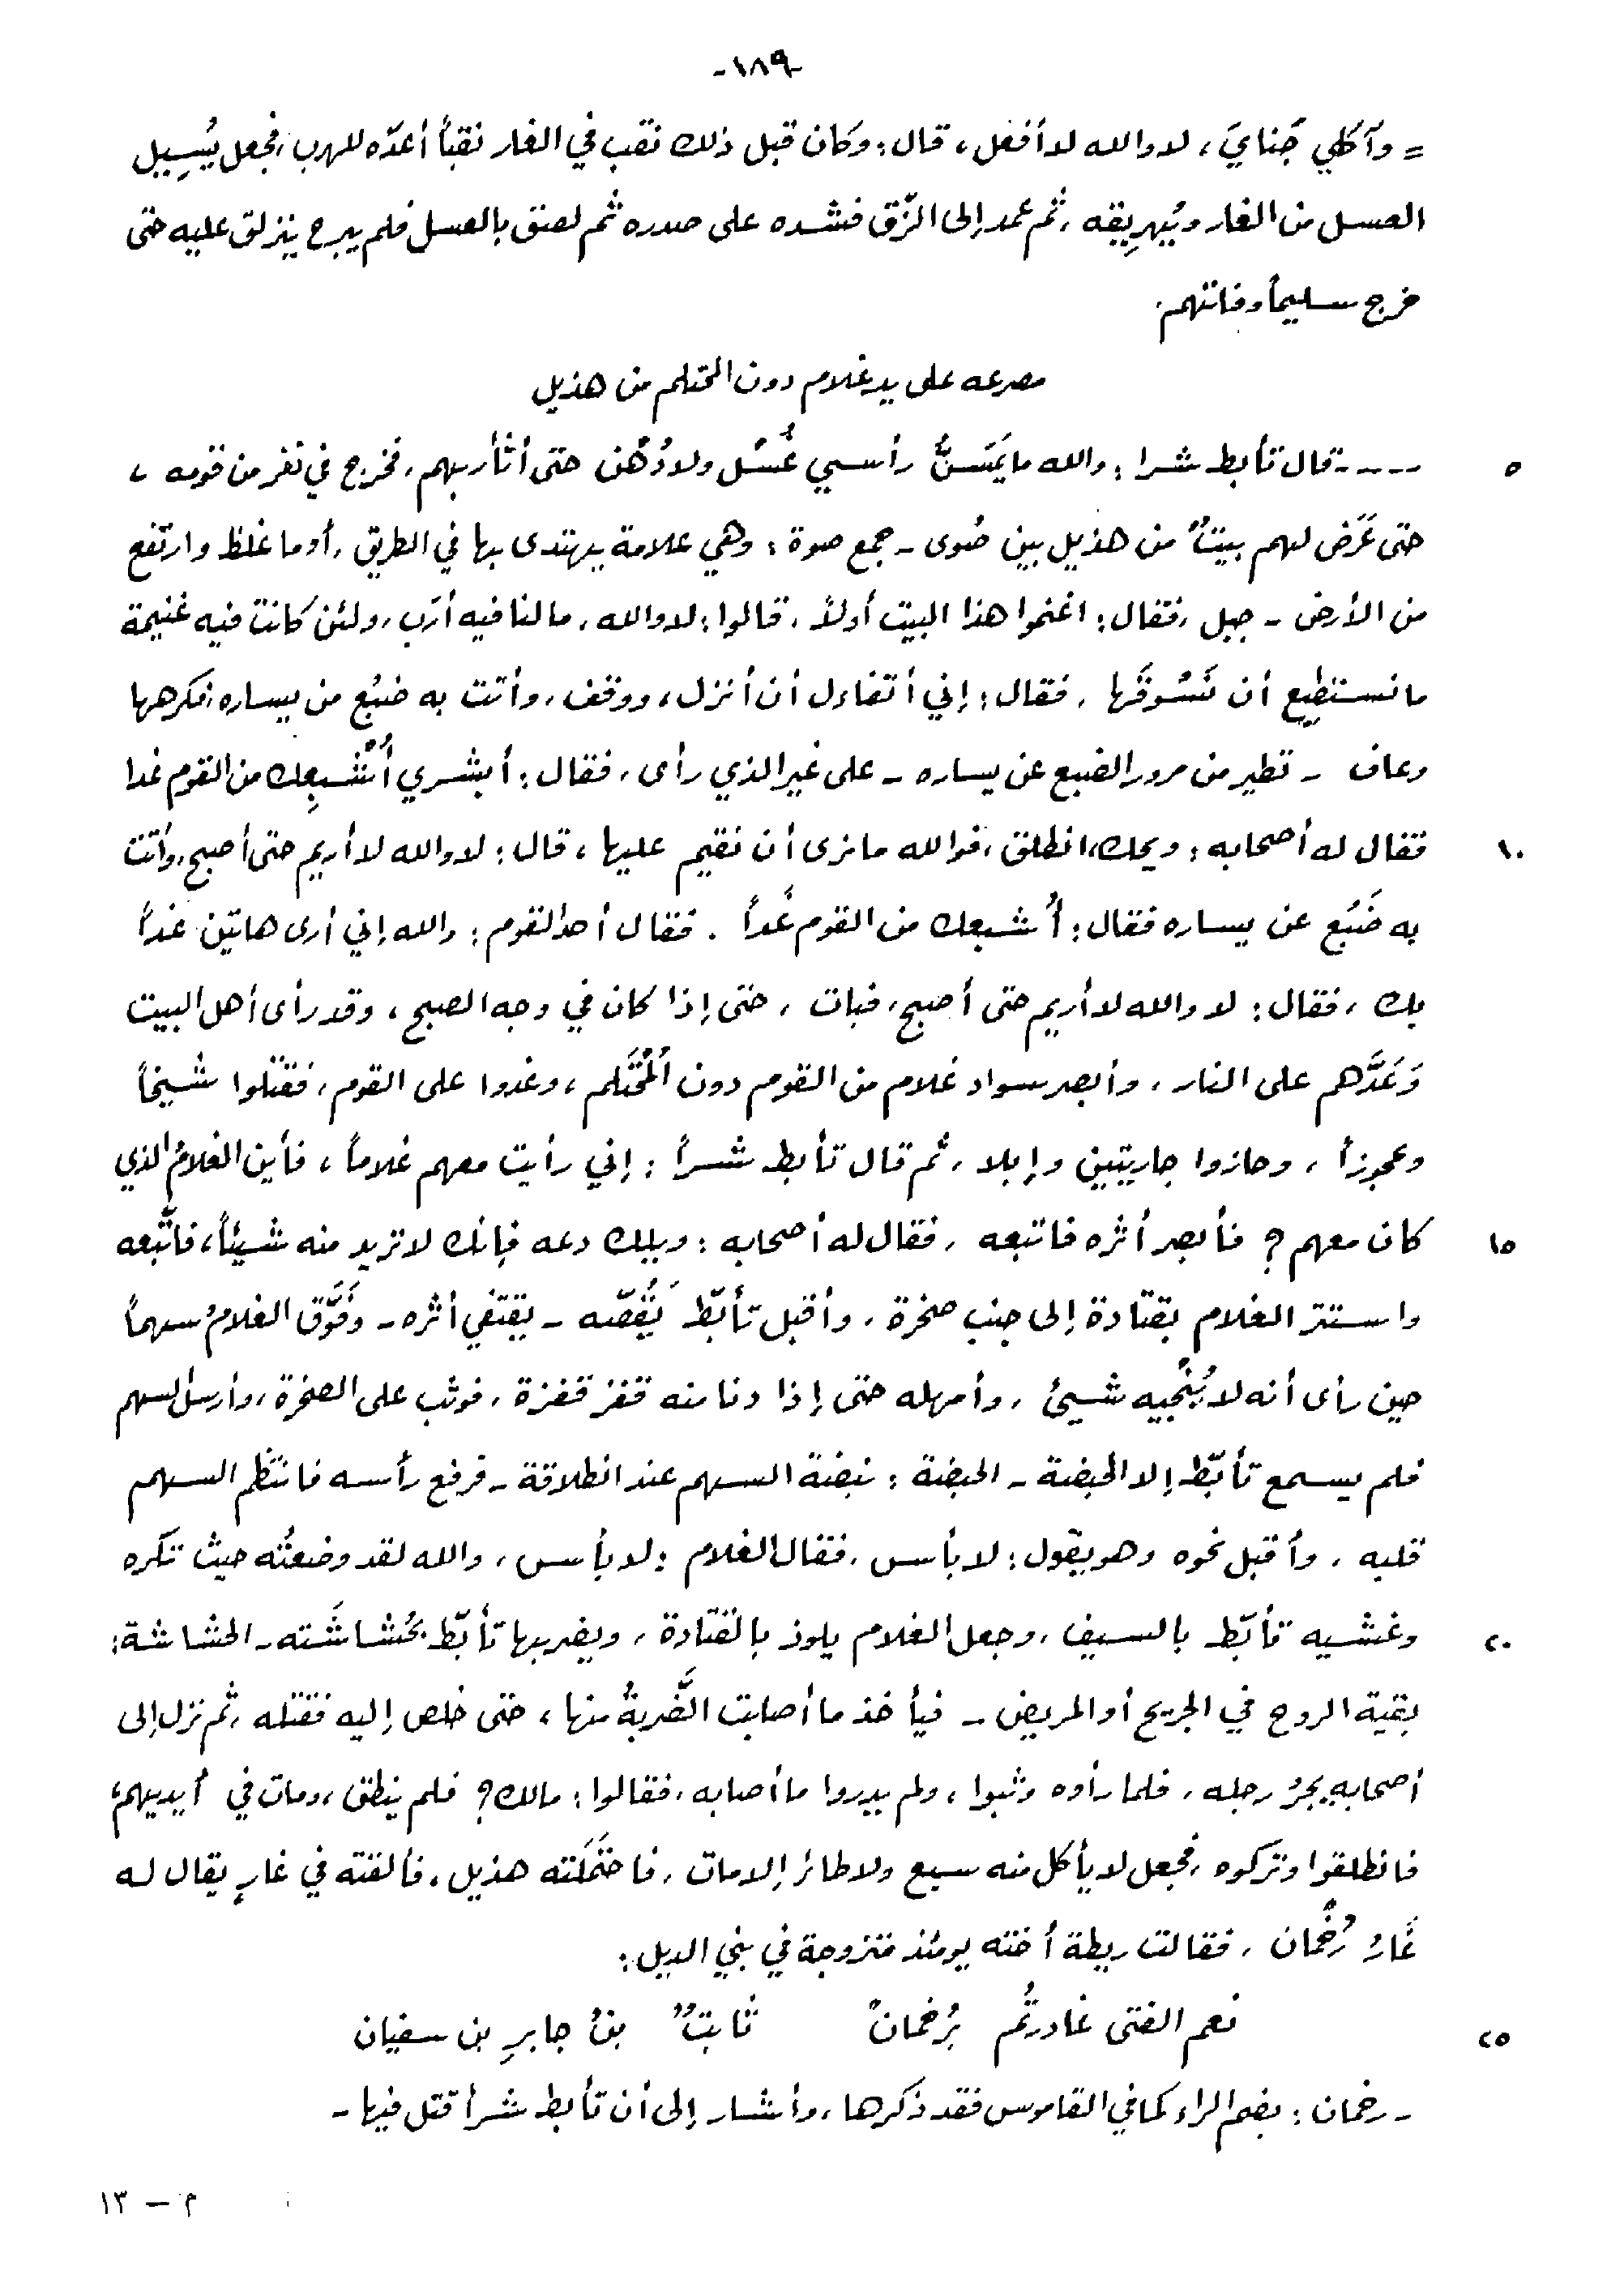 -١٨٩-
= وآكلي جَنايَ، لا والله لا أفعل، قال: وكان قبل ذلك نقب في الغار نقباً أعدّه للهرب، فجعل يُسِيل
العسل من الغار ويُهرِيقه، ثم عمد إلى الزّق فشده على صدره ثم لصق بالعسل فلم يبرح ينزلق عليه حتى
خرج سليماً وفاتهم.
مصرعه على يد غلام دون المحتلم من هذيل
٥ ---- قال تأبط شرا: والله ما يَمَسنَّ رأسي غُسْل ولا دُهْن حتى أثأر بهم، فخرج في نفر من قومه،
حتى عَرَض لهم بيتٌ من هذيل بين صُوى - جمع صوة: وهي علامة يهتدى بها في الطريق، أو ما غلظ وارتفع
من الأرض - جبل، فقال: اغنموا هذا البيت أولاً، قالوا: لا والله، ما لنا فيه أرَب، ولئن كانت فيه غنيمة
ما نستطيع أن نَسُوقَها، فقال: إني أتفاءل أن أنزل، ووقف، وأتت به ضبُع من يساره، فكرهها
وعاف - تطير من مرور الضبع عن يساره - على غير الذي رأى، فقال: أبشري أُشْبِعِك من القوم غدا
١٠ فقال له أصحابه: ويحك، انطلق، فوالله ما نرى أن نقيم عليها، قال: لا والله لا أريم حتى أصبح، وأتت
به ضَبُع عن يساره فقال: أُشبعك من القوم غَداً. فقال أحد القوم: والله إني أرى هاتين غداً
بك، فقال: لا والله لا أريم حتى أصبح، فبات، حتى إذا كان في وجه الصبح، وقد رأى أهل البيت
وَعَدَّهم على النار، وأبصر سواد غلام من القوم دون المُحْتَلم، وغدوا على القوم، فقتلوا شيخاً
وعجوزاً، وحازوا جاريتين وإبلا، ثم قال تأبط شراً: إني رأيت معهم غلاماً، فأين الغلامُ الذي
١٥ كان معهم؟ فأبصر أثره فاتبعه، فقال له أصحابه: ويلك دعه فإنك لا تريد منه شيئاً، فاتَّبعه
واستتر الغلام بقتادة إلى جنب صخرة، وأقبل تأبّط يَقُصّه - يقتفي أثره - وفَوَّق الغلامُ سهماً
حين رأى أنه لا يُنْجيه شيئ، وأمهله حتى إذا دنا منه قفز قفزة، فوثب على الصخرة، وأرسل السهم
فلم يسمع تأبّط إلا الحبضة - الحبضة: نبضة السهم عند انطلاقة - فرفع رأسه فانتظم السهم
قلبه، وأقبل نحوه وهو يقول: لا بأس، فقال الغلام: لا بأس، والله لقد وضعتُه حيث تكره
٢٠ وغشيه تأبّط بالسيف، وجعل الغلام يلوذ بالقتادة، ويضربها تأبّط بحُشاشَته - الحشاشة:
بقية الروح في الجريح أو المريض - فيأخذ ما أصابت الضَّربةُ منها، حتى خلص إليه فقتله، ثم نزل إلى
أصحابه يجرُ رجله، فلما رأوه وثبوا، ولم يدروا ما أصابه، فقالوا: مالك؟ فلم ينطق، ومات في أيديهم،
فانطلقوا وتركوه، فجعل لا يأكل منه سبع ولا طائر إلا مات، فاحتَمَلته هذيل، فألقته في غارٍ يقال له
غَارُ رُخْمان، فقالت ريطة أخته يومئذ متزوجة في بني الديل:
٢٥ نعم الفتى غادرتُم بِرُخمانْ    ثَابتٌ بنُ جابرِ بن سفيان
- رخمان: بضم الراء كما في القاموس فقد ذكرها، وأشار إلى أن تأبط شراً قتل فيها -
م - ١٣